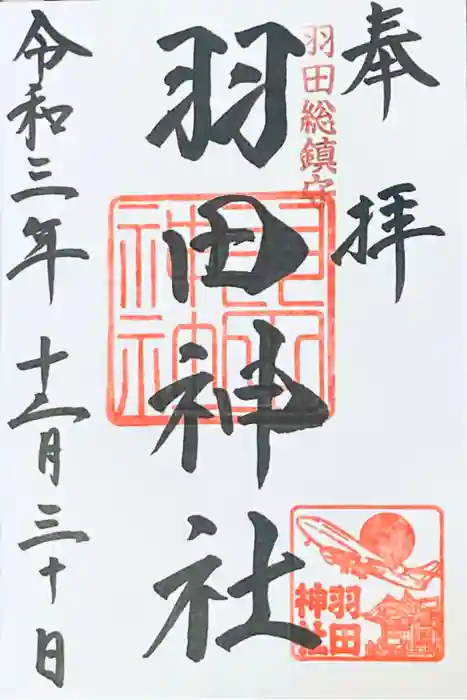 奉拝
羽田総鎮守
羽田神社
羽田神社
羽田
神社
令和三年十二月三十日